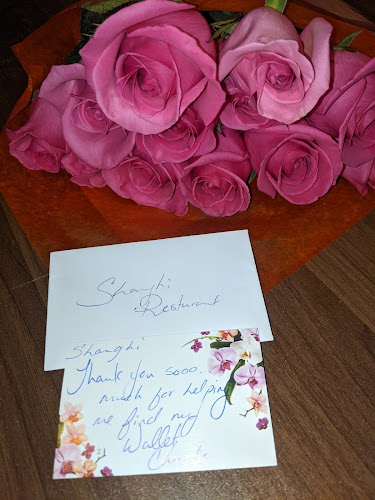 Shanghi
Resturant
Shanghi
Thank you sooo
much for helping
me find my
Wallet